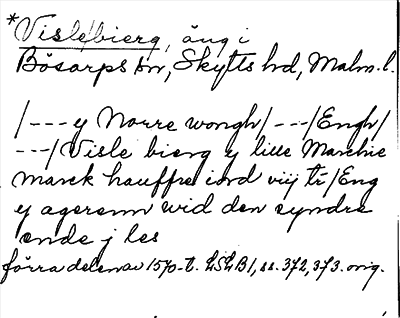 *Vislebierg, äng i
Bösarps sn, Skytts hd, Malm. l.
/--- y Norre wongh/---/Engh/
---/Visle bierg y lille Marchie
marck hauffue iord viij tr/Eng
y agerenn wid den syndre
ende j les
förra delen av 1570-t. LSLB1, ss. 372, 373. orig.